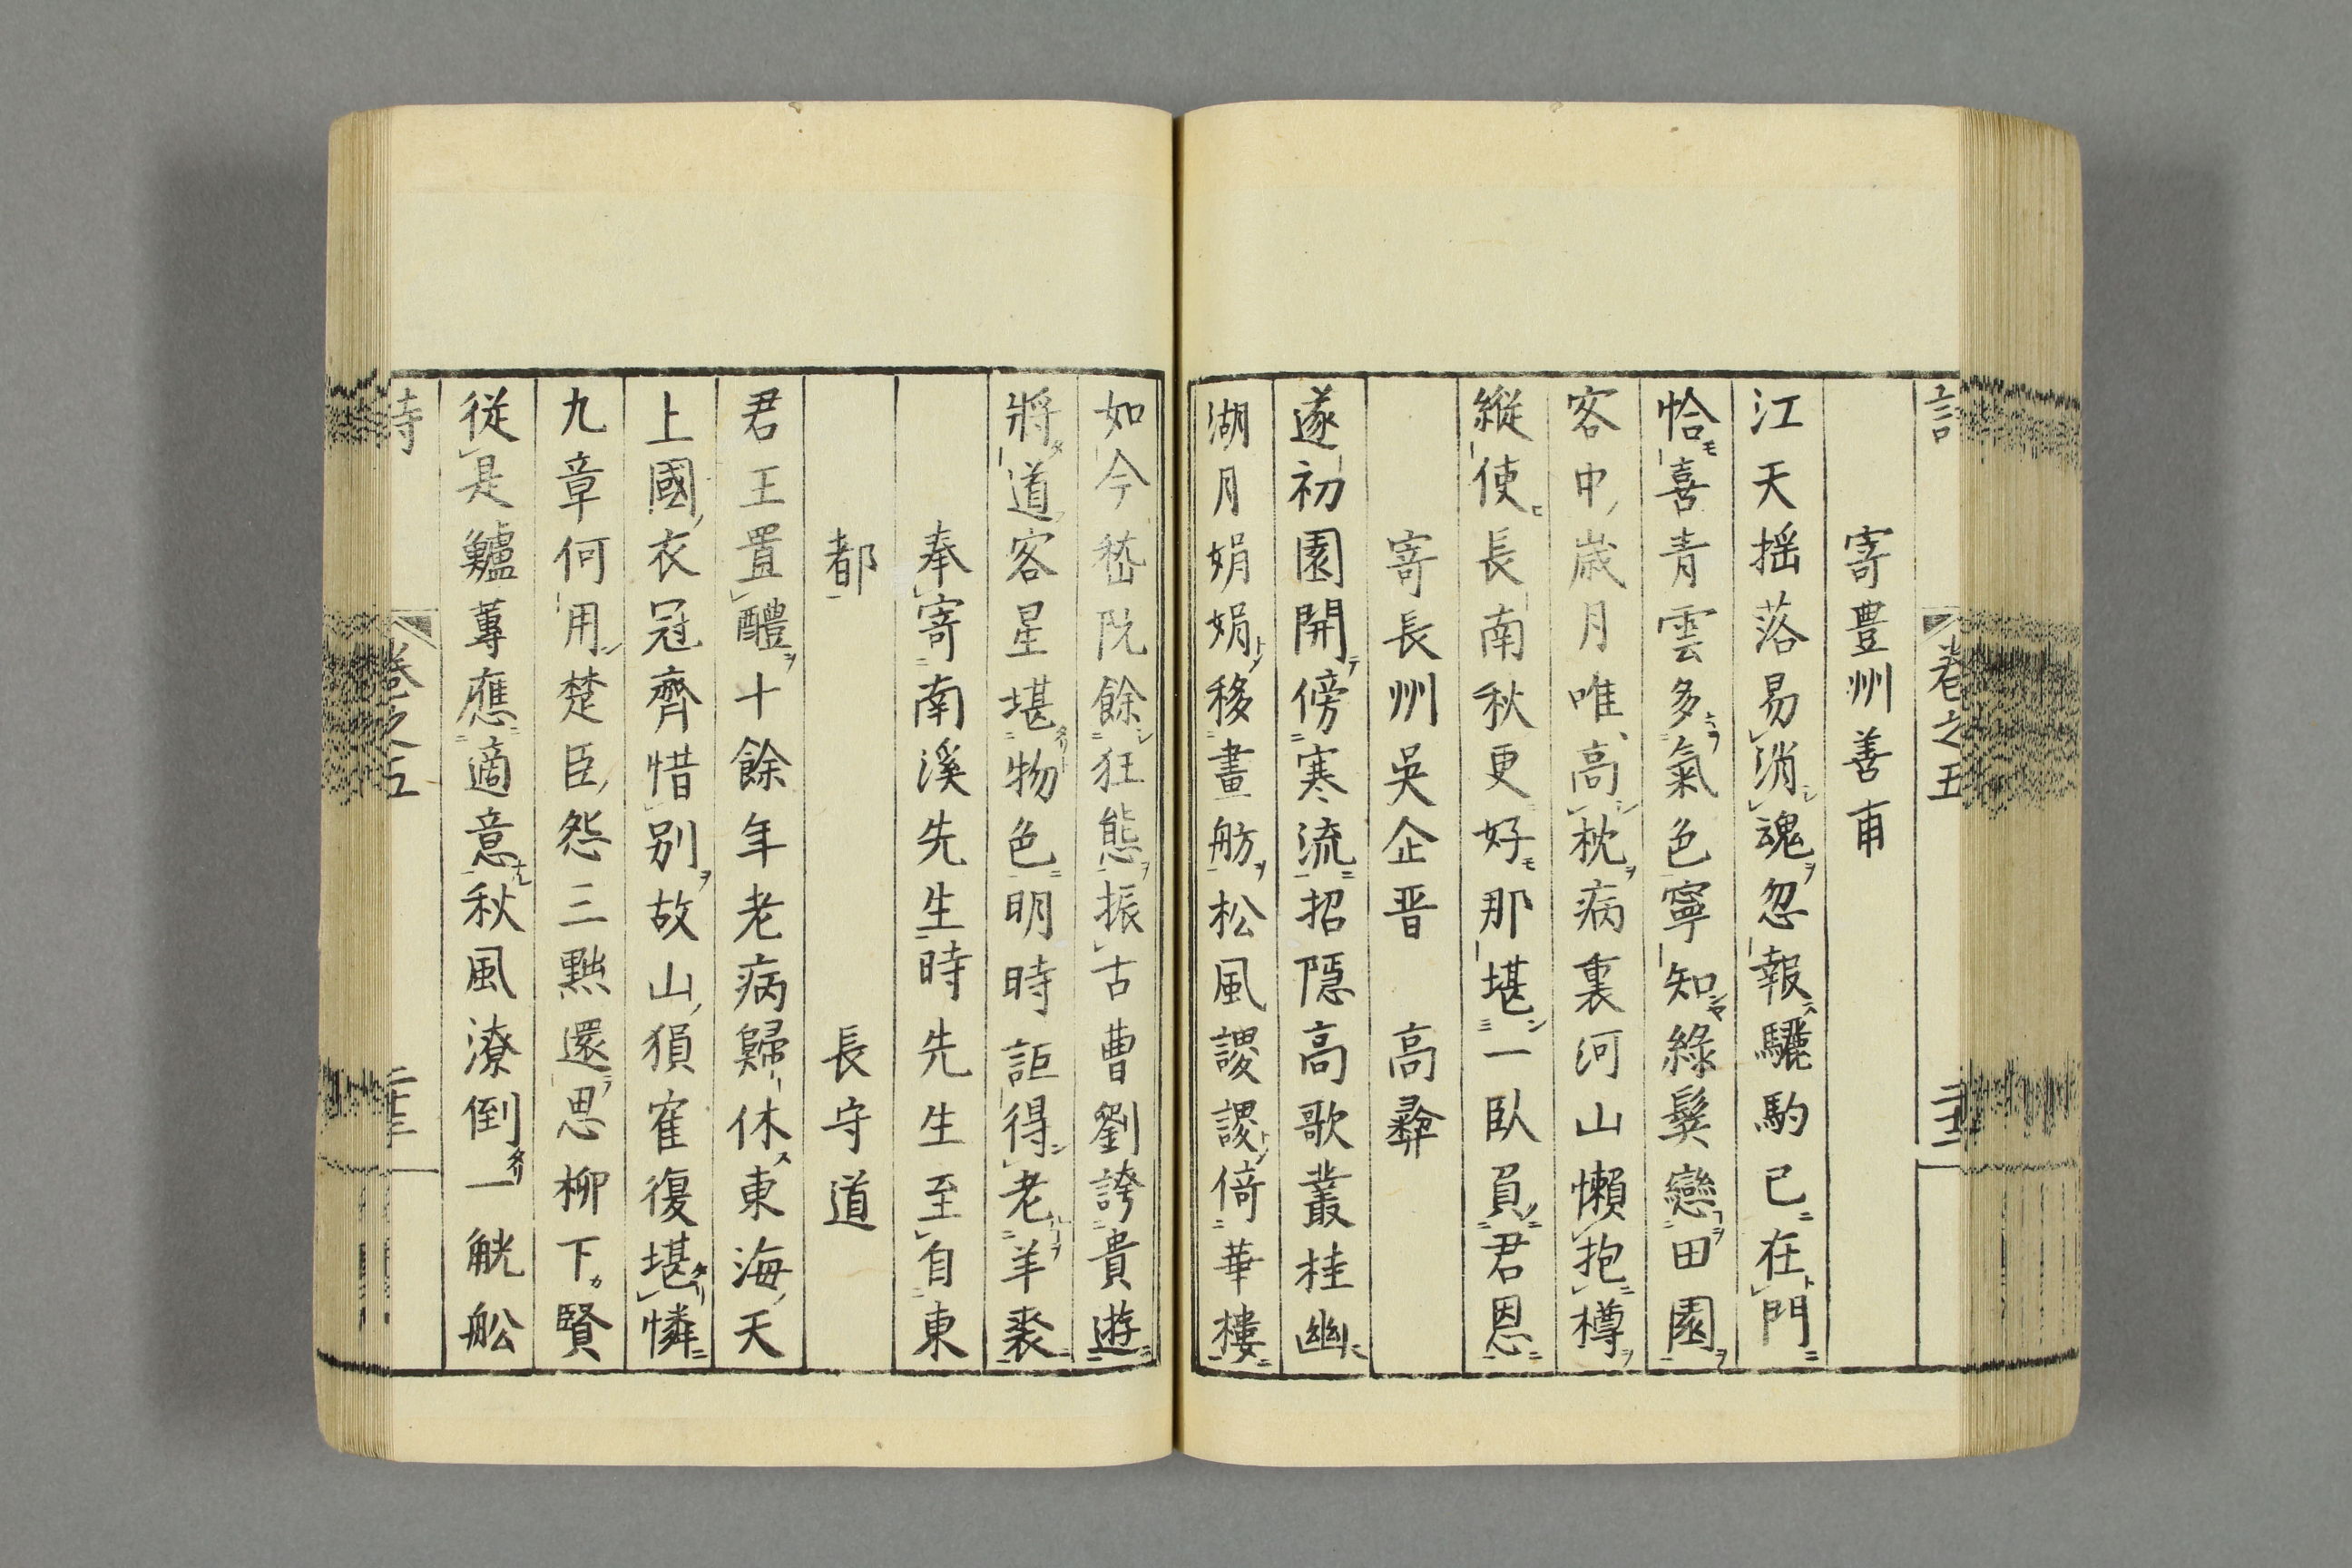 卷之五
寄豊州善甫
江天揺落易消魂忽報驪駒已在門
恰喜青雲多氣色寧知綠鬢戀田園
客中歳月唯高枕病裏河山懶抱樽
縱使長南秋更好那堪一臥負君恩
寄長州吳企晋　高彝
遂初園開傍寒流招隱高歌叢桂幽
湖月娟娟移畫舫松風謖謖倚華樓
如今嵇阮餘狂態振古曹劉誇貴遊
將道客星堪物色明時詎得老羊裘
奉寄南溪先生時先生至自東
都　長守道
君王置醴十餘年老病歸休東海天
上國衣冠齊惜別故山猿寉復堪憐
九章何用楚臣怨三黜還思柳下賢
從是鱸蓴應適意秋風潦倒一觥舩
詩　卷之五